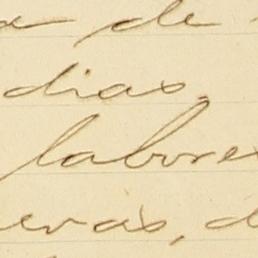 a de
dias,
labores
evas, d